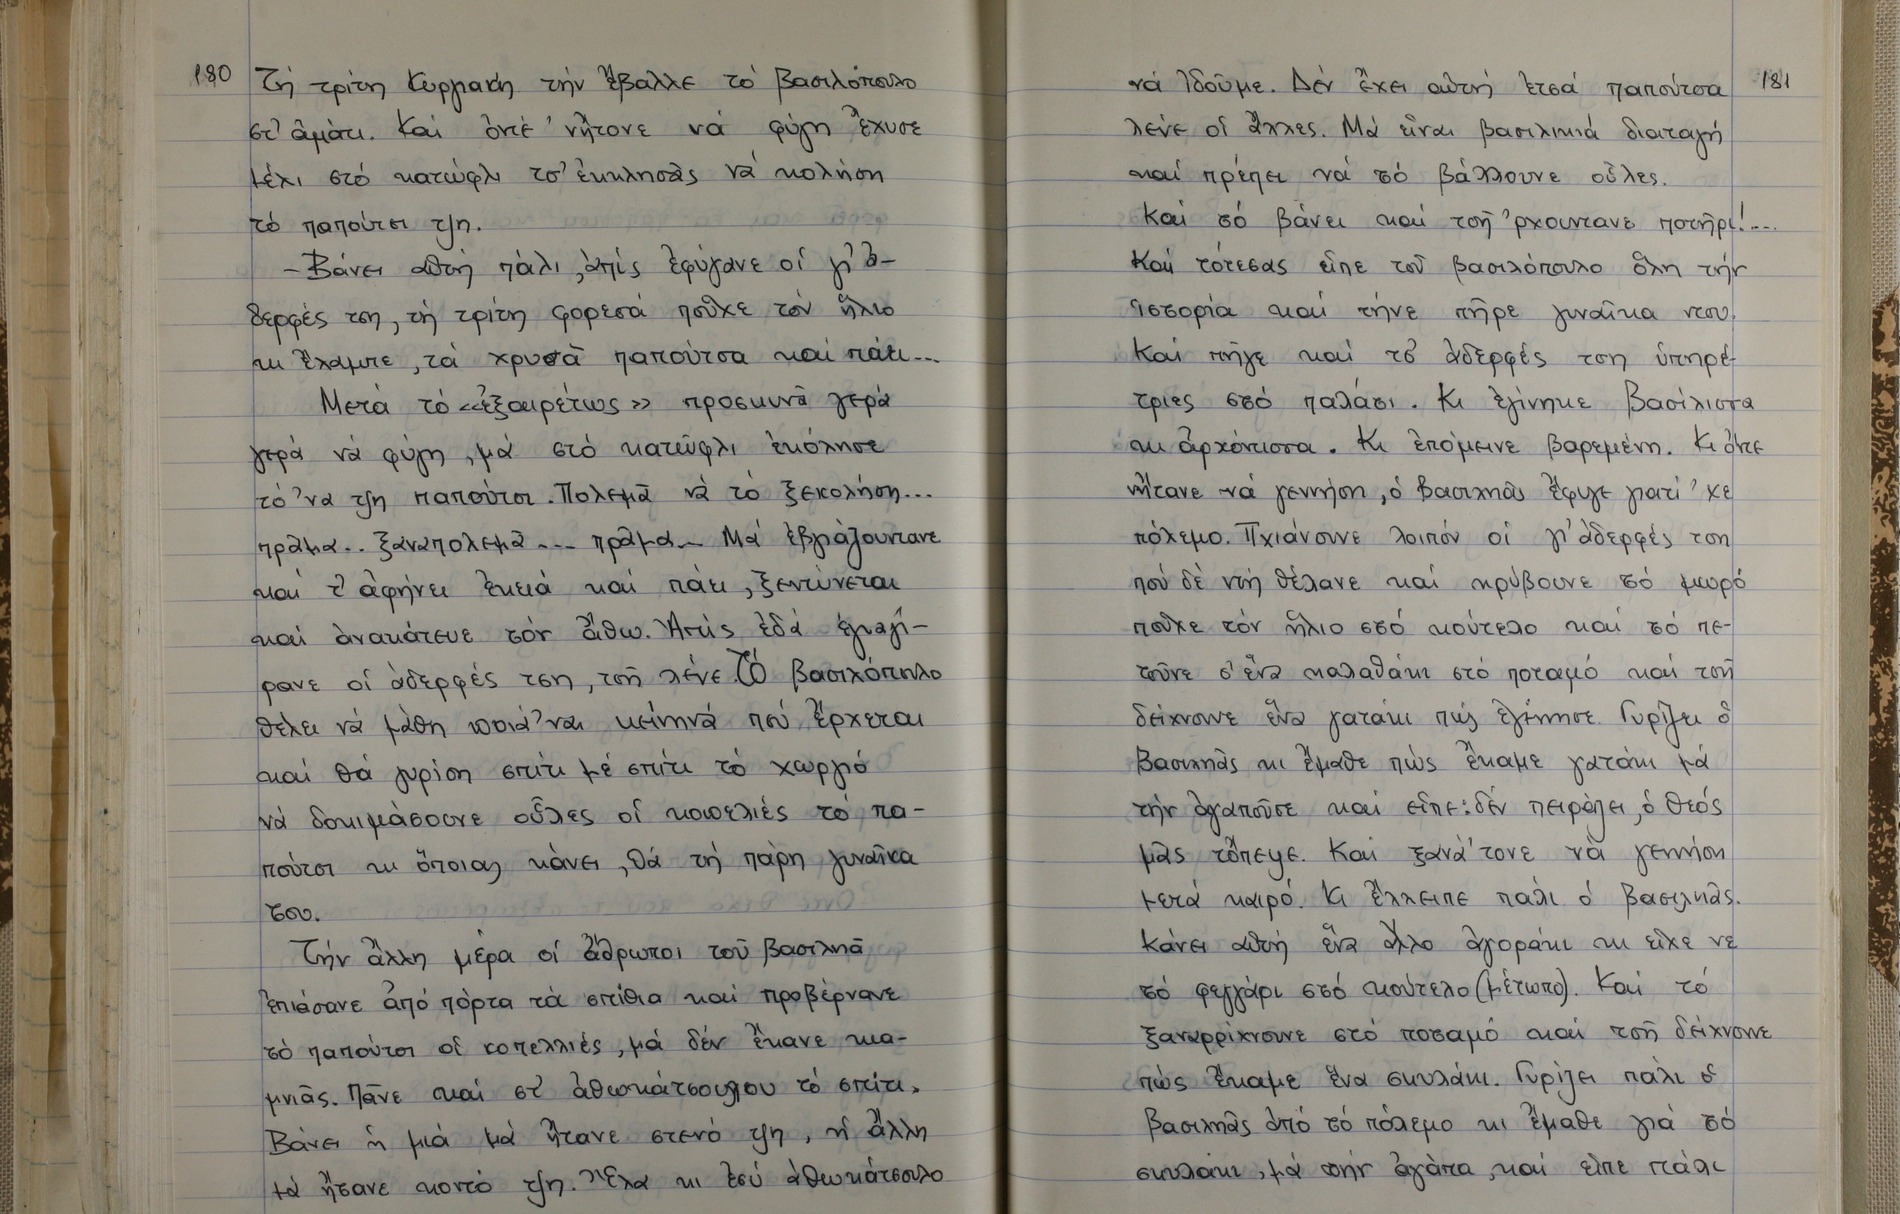 180
Τή τρίτη Κυργιακή τήν ἔβαλλε τό βασιλόπουλο
στ' ἀμάτι. Καί ὀντέ 'νῆτονε νά φύγη ἔχυσε
μέλι στό κατώφλι τσ' ἐκκλησᾶς νά κολήση
τό παπούτσι τζη.
– Βάνει αὐτή πάλι, ἀπίς ἐφύγανε οἱ γι' ἀ-
δερφές τση, τή τρίτη φορεσά ποὖχε τόν ἥλιο
κι ἔλαμπε, τά χρυσᾶ παπούτσα καί πάει...
Μετά τό «ἐξαιρέτως» προσκυνᾶ γερά
γερά νά φύγη, μά στό κατώφλι ἐκόλησε
τό 'να τζη παπούτσι. Πολεμᾶ νά τό ξεκολήση...
πρᾶμα.. ξαναπολεμᾶ... πρᾶμα... Μά ἐβγιάζουντανε
καί τ' ἀφήνει ἐκειά καί πάει, ξεντύνεται
καί ἀνακάτευε τόν ἄθω. Ἀπίς ἐδά ἐγιαγί-
ρανε οἱ ἀδερφές τση, τσῆ λένε. Τό βασιλόπουλο
θέλει νά μάθη ποιά 'ναι κείνηνά πού ἔρχεται
καί θά γυρίση σπίτι μέ σπίτι τό χωργιό
νά δοκιμάσουνε οὗλες οἱ κοπελιές τό πα-
πούτσι κι ὅποιας κάνει, θά τή πάρη γυναῖκα
του.
Τήν ἄλλη μέρα οἱ ἄθρωποι τοῦ βασιληᾶ
ἐπιάσανε ἀπό πόρτα τά σπίθια καί προβέρνανε
τό παπούτσι οἱ κοπελλιές, μά δέν ἔκανε κια-
μνιᾶς. Πᾶνε καί στ' ἀθωκάτσουλου τό σπίτι.
Βάνει ἡ μιά μά ἤτανε στενό τζη, ἡ ἄλλη
μά ἤτανε κοντό τζη. Ἔλα κι ἐσύ ἀθωκάτσουλο
181
νά ἰδοῦμε. Δέν ἔχει αὐτή ἐτσά παπούτσα
λένε οἱ ἄλλες. Μά εἶναι βασιλικιά διαταγή
καί πρέπει νά τό βάλλουνε οὗλες.
Καί τό βάνει καί τσῆ 'ρχουντανε ποτῆρι!...
Καί τότεσας εἶπε τοῦ βασιλόπουλο ὅλη τήν
ἱστορία καί τήνε πῆρε γυναῖκα ντου.
Καί πῆγε καί τσ' ἀδερφές τση ὑπηρέ-
τριες στό παλάτι. Κι ἐγίνηκε βασίλισσα
κι ἀρχόντισσα. Κι ἐπόμεινε βαρεμένη. Κι ὄντε
νῆτανε νά γεννήση, ὁ βασιληᾶς ἔφυγε γιατί 'χε
πόλεμο. Πχιάνουνε λοιπόν οἱ γι' ἀδερφές τση
πού δέ ντή θέλανε καί κρύβουνε τό μωρό
ποὖχε τόν ἥλιο στό κούτελο καί τό πε-
τοῦνε σ' ἕνα καλαθάκι στό ποταμό καί τσῆ
δείχνουνε ἕνα γατάκι πώς ἐγέννησε. Γυρίζει ὁ
βασιληᾶς κι ἔμαθε πώς ἔκαμε γατάκι μά
τήν ἀγαποῦσε καί εἶπε: δέν πειράζει, ὁ Θεός
μᾶς τὄπεψε. Καί ξανά 'τονε νά γεννήση
μετά καιρό. Κι ἔλλειπε πάλι ὁ βασιληᾶς.
Κάνει αὐτή ἕνα ἄλλο ἀγοράκι κι εἶχε νε
τό φεγγάρι στό κούτελο (μέτωπο). Καί τό
ξαναρρίχνουνε στό ποταμό καί τσῆ δείχνουνε
πώς ἔκαμε ἕνα σκυλάκι. Γυρίζει πάλι ὁ
βασιληᾶς ἀπό τό πόλεμο κι ἔμαθε γιά τό
σκυλάκι, μά τήν ἀγάπα καί εἶπε πάλι